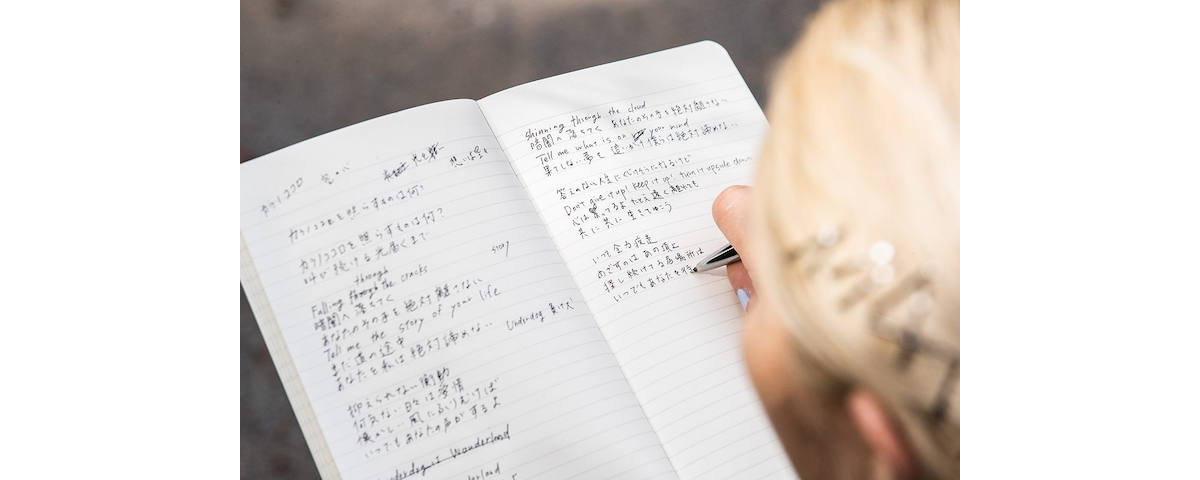 カラノココロ
カラノココロを照らすものは何?
カラノココロを照らすものは何?
叫び続ける 光届くまで
story
through
Falling through the cracks
暗闇へ落ちてく
あなたのその手を絶対離さない
Tell me the story of your life
まだ道の途中
あなたを私は絶対諦めない… Underdog 負け犬
抑えられない衝動
何気ない日々は愛情
懐かし… 風にふりむけば
いつでもあなたの声がするよ
underdog is Wonderland
Shinning through the cloud
暗闇へ落ちてく あなたのその手を絶対離さない
Tell me what is on your mind
果てしない夢を 追いかけ 僕らは絶対諦めない…
答えのない人生にくじけそうになるけど
Don't give it up! keep it up! turn it upside down
心は繋ってるよ たとえ遠く離れても
共に共に生きてゆこう
いつも全力疾走
めざすのはあの頂上
探し続けてる居場所は
いつでもあなたを